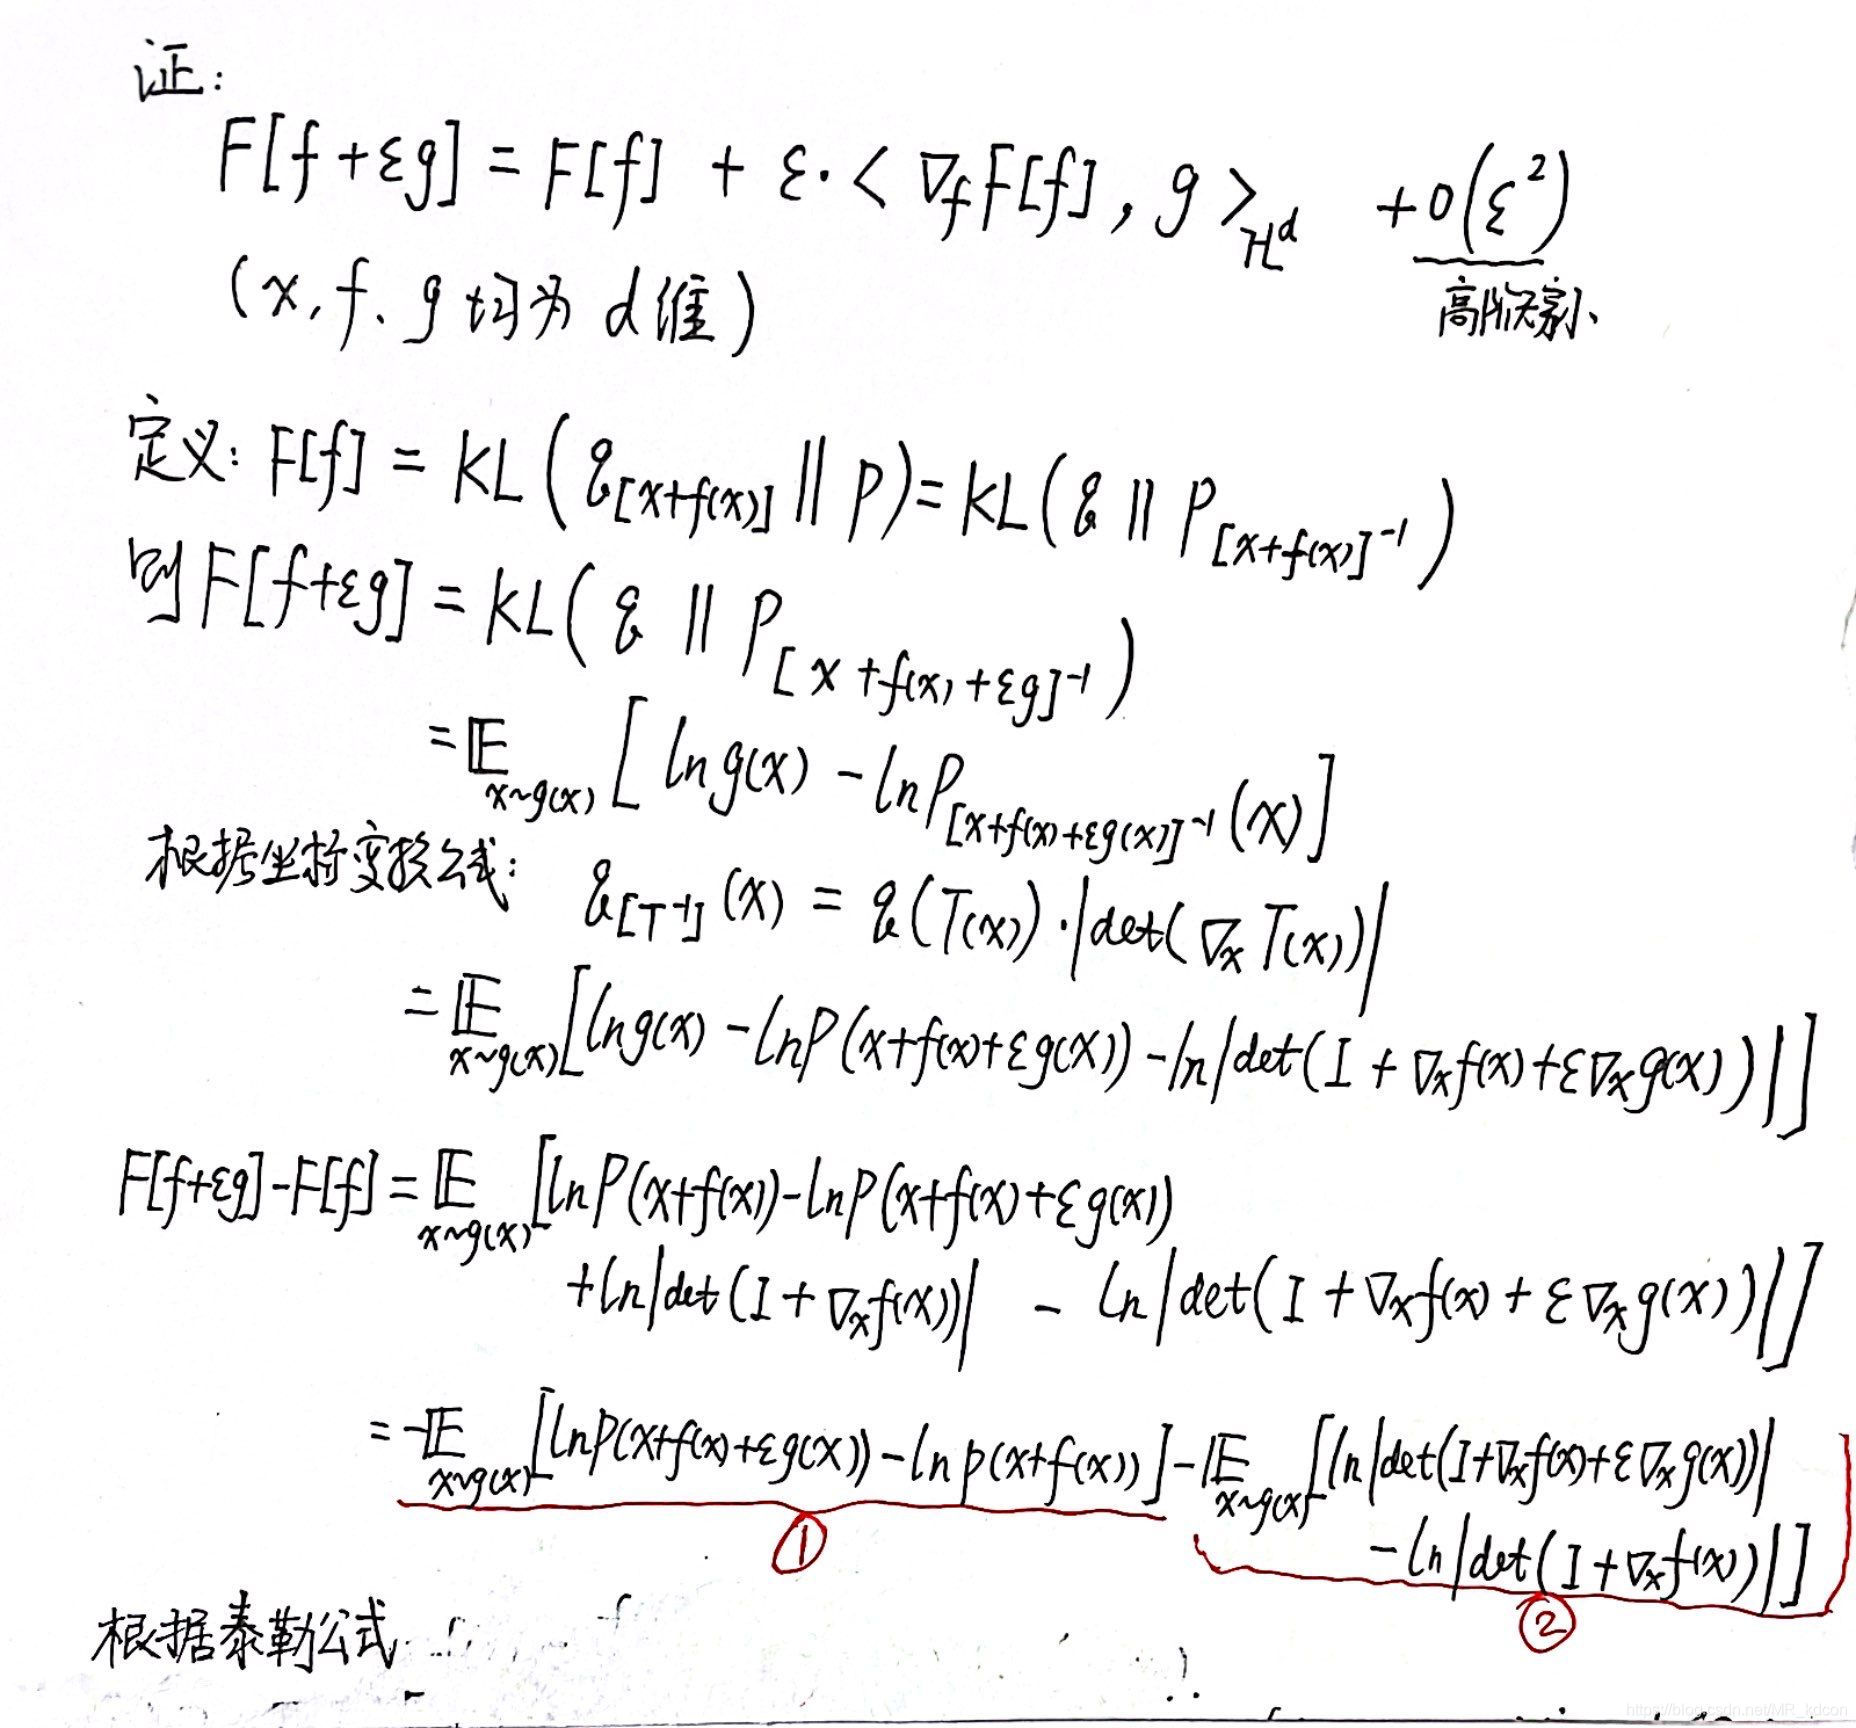 证:
F[f+εg] = F[f] + ε·< ∇_f F[f], g >_{H^d} + O(ε²)
(x, f、g 均为 d 维)
高阶无穷小
定义: F[f] = KL(q_{[x+f(x)]} || p) = KL(q || p_{[x+f(x)]^{-1}})
则 F[f+εg] = KL(q || p_{[x+f(x)+εg]^{-1}})
= 𝔼_{x~q(x)} [ln q(x) - ln p_{[x+f(x)+εg(x)]^{-1}}(x)]
根据坐标变换公式: q_{[T^{-1}]}(x) = q(T(x))·|det(∇_x T(x))|
= 𝔼_{x~q(x)} [ln q(x) - ln p(x+f(x)+εg(x)) - ln|det(I + ∇_x f(x) + ε∇_x g(x))|]
F[f+εg] - F[f] = 𝔼_{x~q(x)} [ln p(x+f(x)) - ln p(x+f(x)+εg(x))
+ ln|det(I + ∇_x f(x))| - ln|det(I + ∇_x f(x) + ε∇_x g(x))|]
= -𝔼_{x~q(x)} [ln p(x+f(x)+εg(x)) - ln p(x+f(x))] - 𝔼_{x~q(x)} [ln|det(I+∇_x f(x)+ε∇_x g(x))|
- ln|det(I+∇_x f(x))|]
①
②
根据泰勒公式